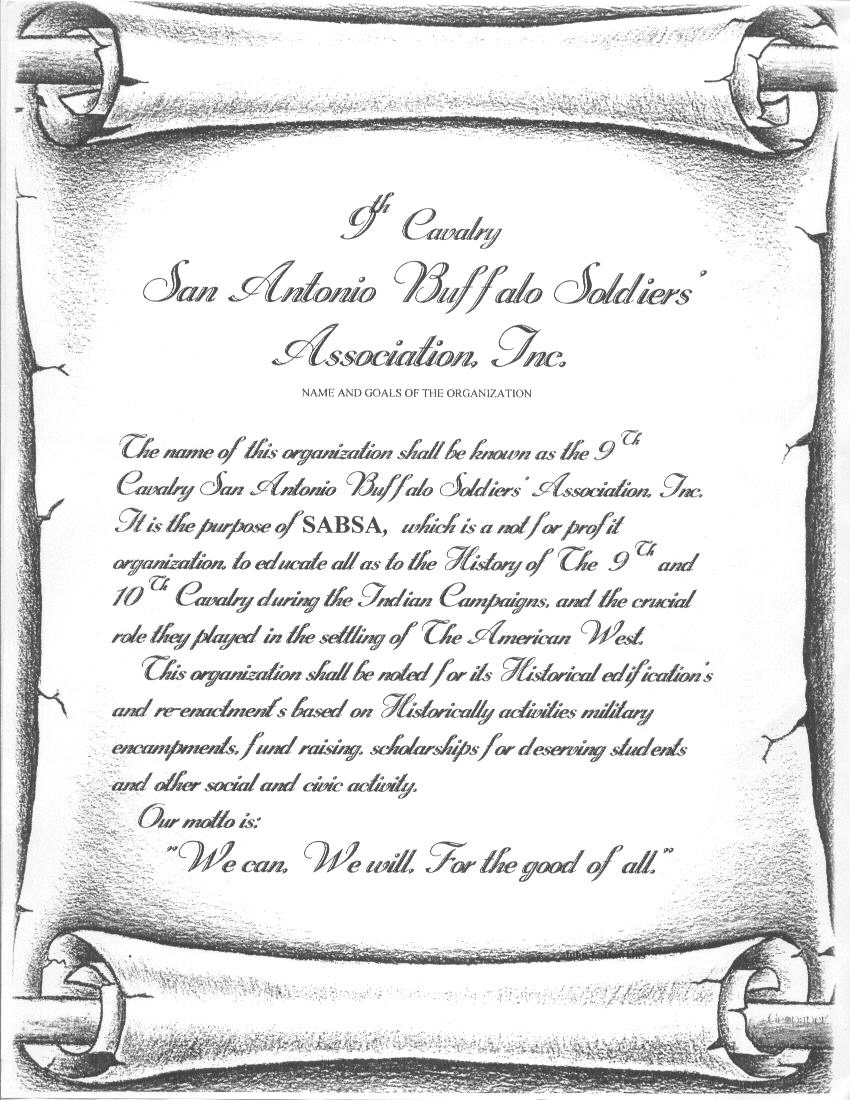 9th Cavalry
San Antonio Buffalo Soldiers'
Association, Inc.
NAME AND GOALS OF THE ORGANIZATION
The name of this organization shall be known as the 9Th
Cavalry San Antonio Buffalo Soldiers' Association, Inc.
It is the purpose of SABSA, which is a not for profit
organization, to educate all as to the History of The 9Th and
10Th Cavalry during the Indian Campaigns, and the crucial
role they played in the settling of The American West.
This organization shall be noted for its Historical edification's
and re-enactment's based on Historically activities military
encampments, fund raising, scholarships for deserving students
and other social and civic activity.
Our motto is:
"We can, We will, For the good of all."